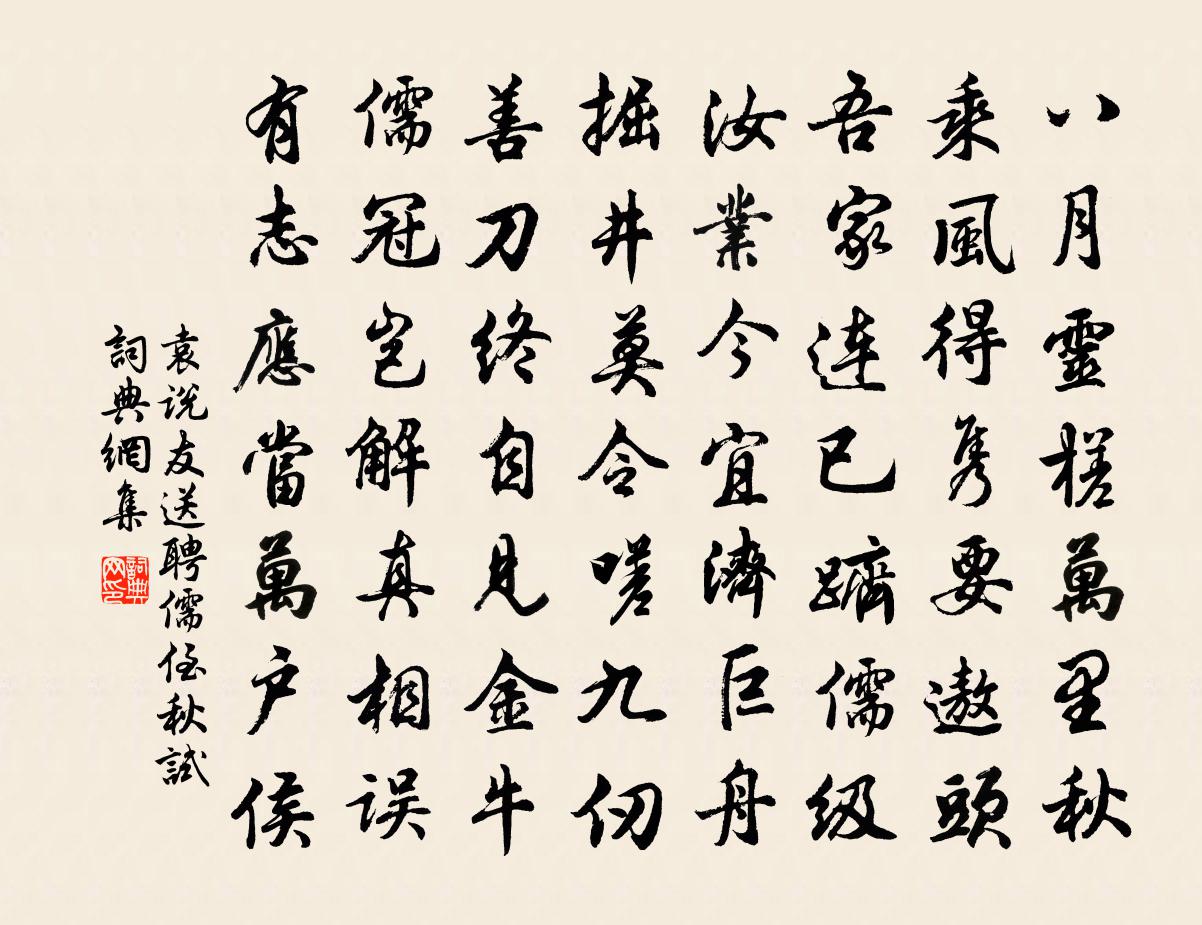 八月靈槎萬里秋
乘風得雋要遨頭
吾家连已躋儒级
汝業今宜濟巨舟
掘井莫令嗟九仞
善刀终自見金牛
儒冠岂解真相误
有志應當萬户侯
袁说友送聘儒侄秋試
詞典網集
詞典网印